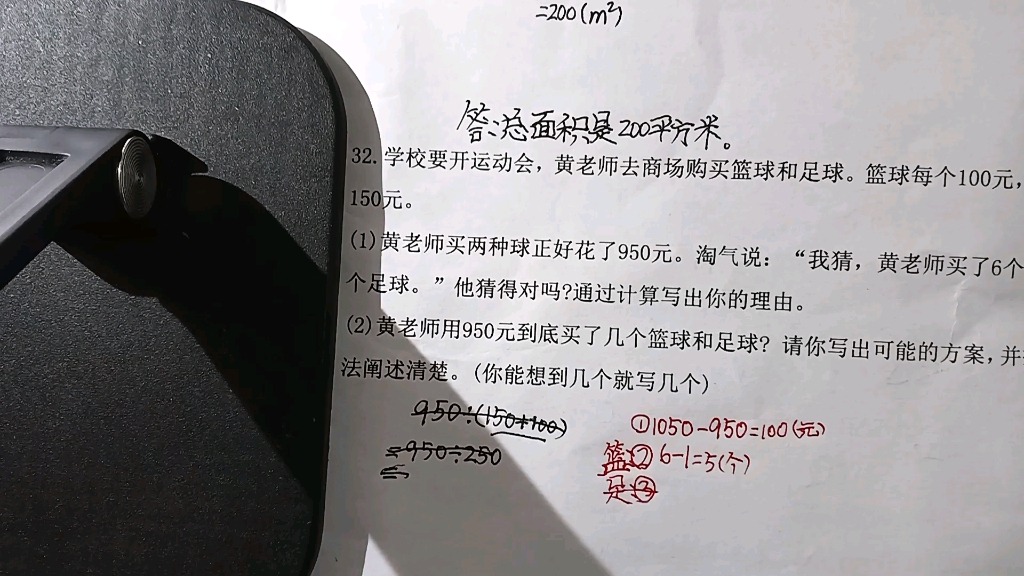 =200(m²)
答:总面积是200平方米。
32.学校要开运动会，黄老师去商场购买篮球和足球。篮球每个100元，
150元。
(1)黄老师买两种球正好花了950元。淘气说：“我猜，黄老师买了6个
个足球。”他猜得对吗?通过计算写出你的理由。
(2)黄老师用950元到底买了几个篮球和足球?请你写出可能的方案，并
法阐述清楚。(你能想到几个就写几个)
950÷(150+100)
=950÷250
=
①1050-950=100(元)
篮:②6-1=5(个)
足:③